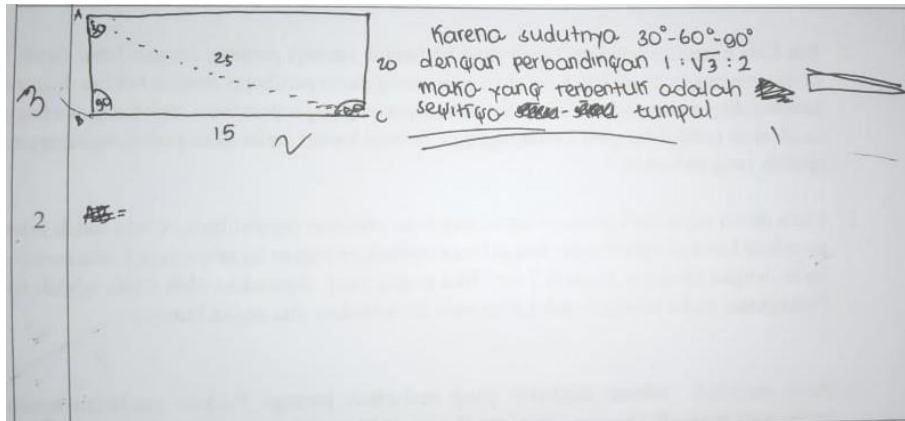 A
30
25
20
3
90
60°
B
C
15
Karena sudutnya 30°-60°-90°
dengan perbandingan 1 : √3 : 2
maka yang terbentuk adalah
segitiga tumpul
2
=